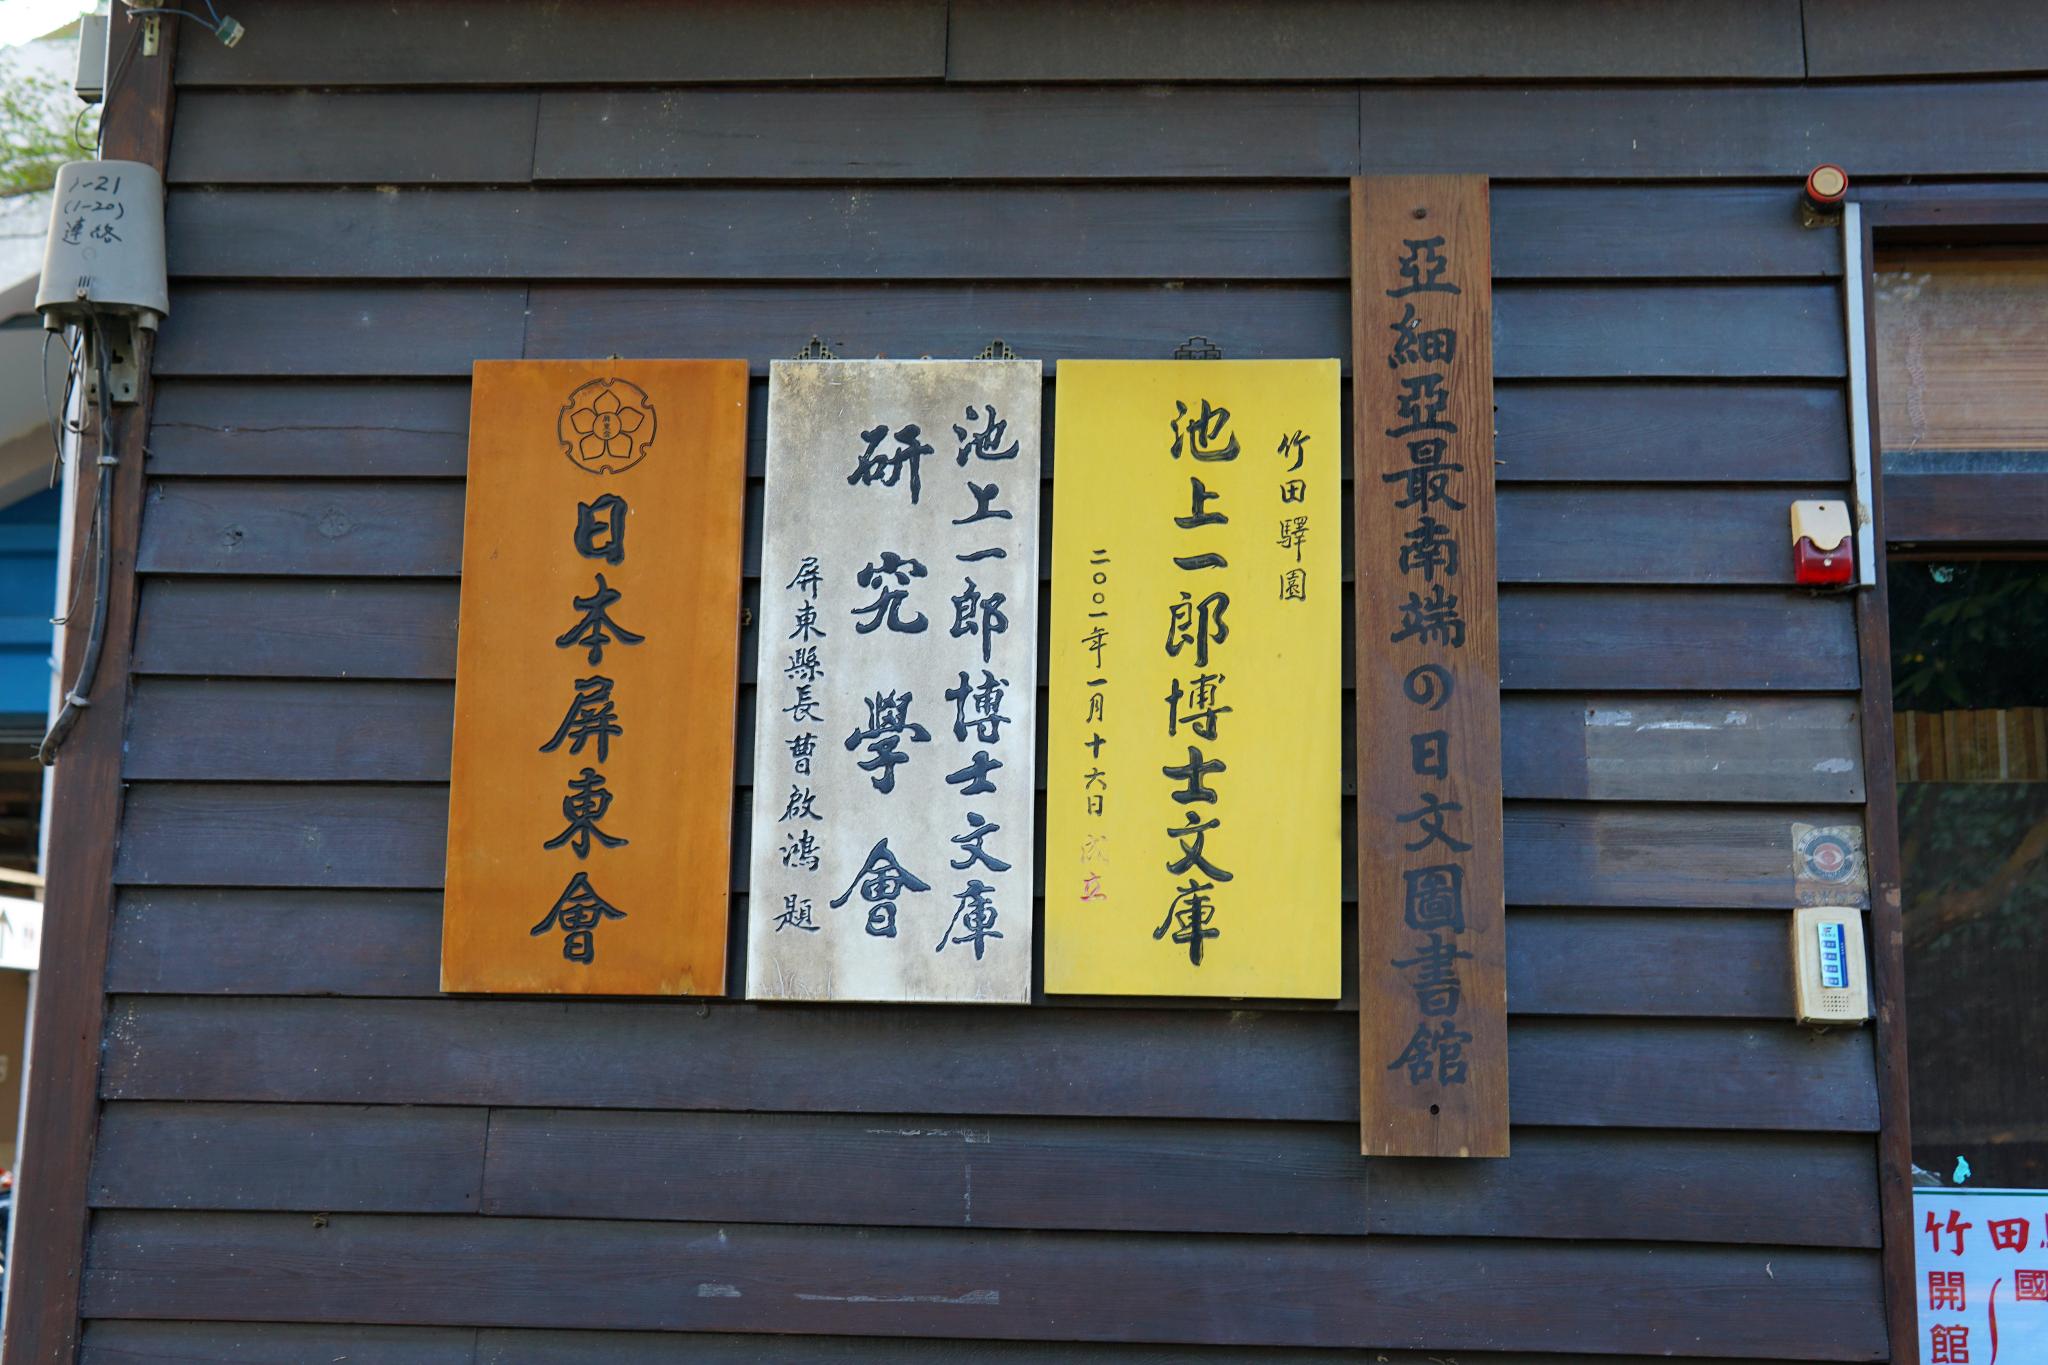 亞細亞最南端の日文圖書館
竹田驛園
池上一郎博士文庫
二〇〇一年一月十六日成立
池上一郎博士文庫
研究學會
屏東縣長曹啟鴻題
屏東会
日本屏東會
1-21
(1-20)
連絡
竹田
國
開館